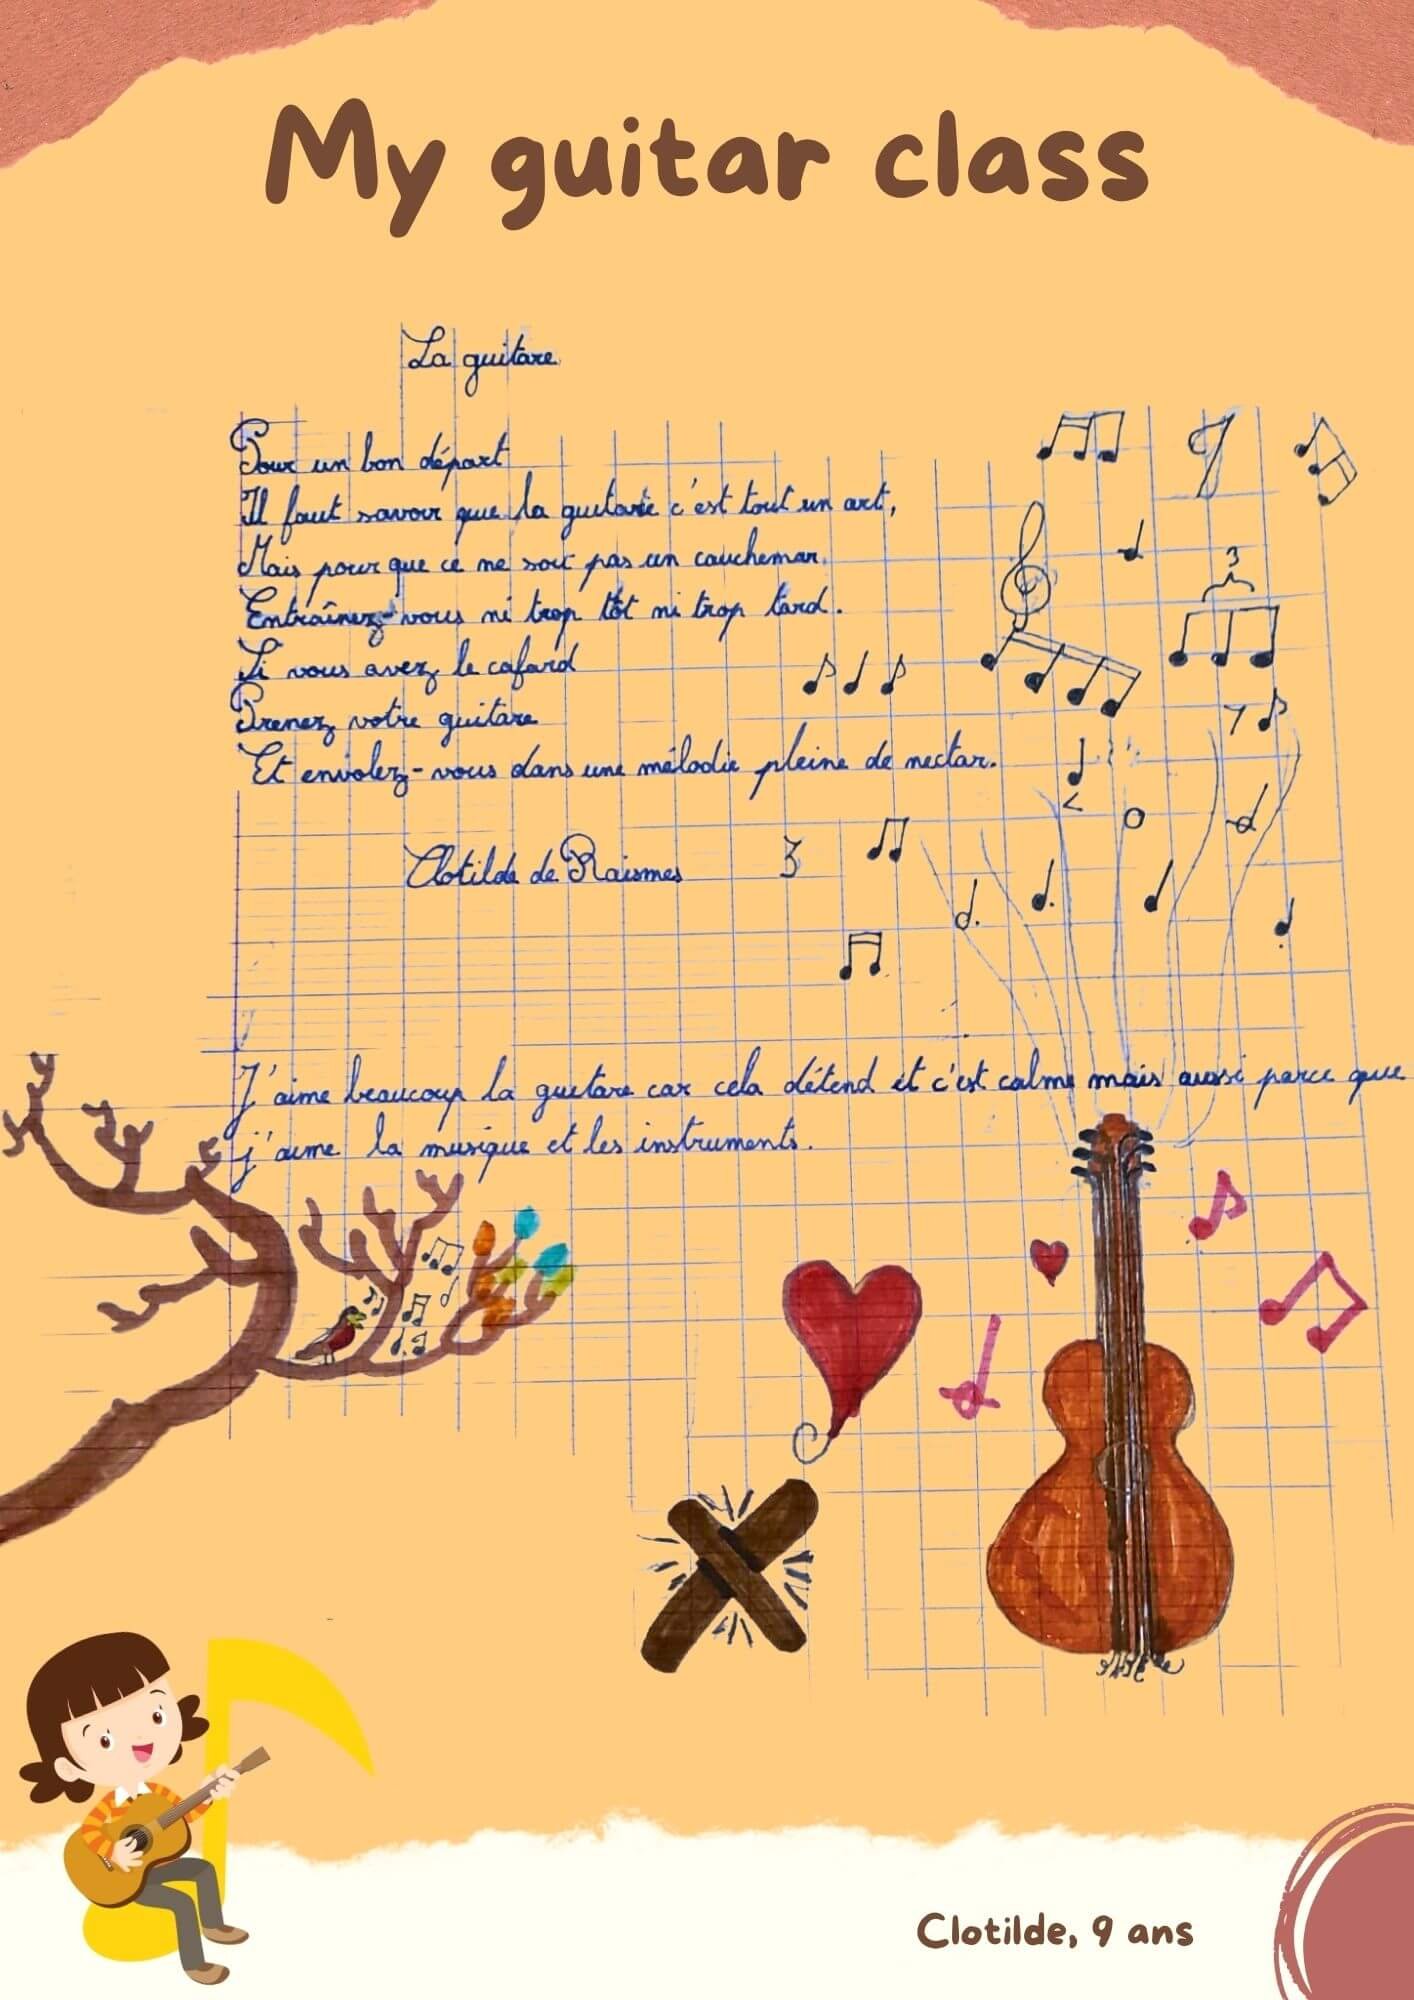 My guitar class
La guitare
Pour un bon départ
Il faut savoir que la guitare c'est tout un art,
Mais pour que ce ne soit pas un cauchemar
Entraînez-vous ni trop tôt ni trop tard.
Si vous avez le cafard
Prenez votre guitare
Et envolez-vous dans une mélodie pleine de nectar.
Clotilde de Raismes
3
J'aime beaucoup la guitare car cela détend et c'est calme mais aussi parce que
j'aime la musique et les instruments.
Clotilde, 9 ans